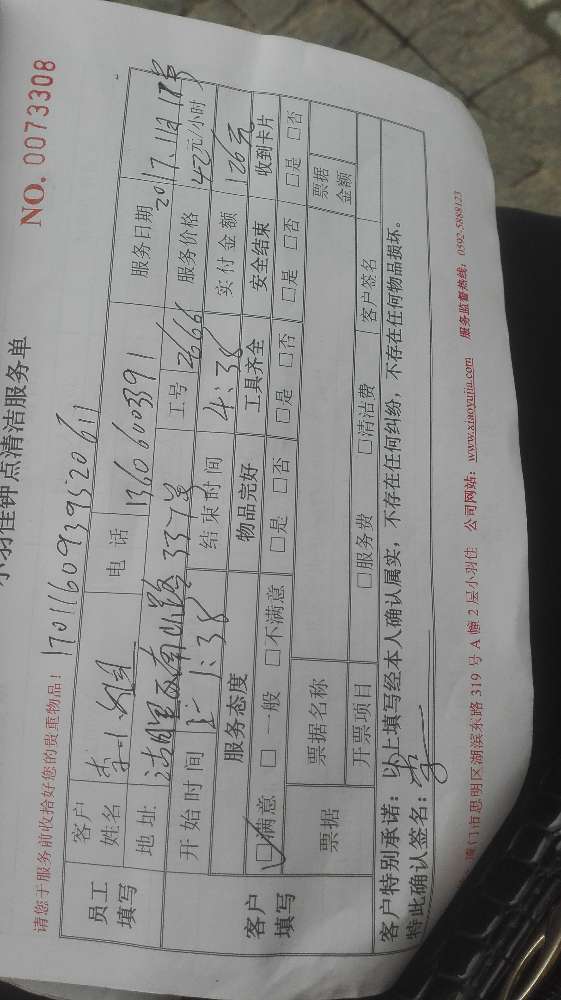 小羽佳钟点清洁服务单
NO. 0073308
请您于服务前收拾好您的贵重物品! 1701160939520611
员工填写 客户姓名 李小姐 电话 13606003391 服务日期 2017.11月18号
地址 湖里区南山路337号 工号 2666 服务价格 42元/小时
开始时间 1:38 结束时间 4:38 实付金额 126元
客户填写 服务态度 物品完好 工具齐全 安全结束 收到卡片
☑满意 □一般 □不满意 □是 □否 □是 □否 □是 □否 □是 □否
票据 票据名称 □服务费 □清洁费 票据金额
开票项目 客户签名
客户特别承诺: 以上填写经本人确认属实,不存在任何纠纷,不存在任何物品损坏。
特此确认签名: 李
厦门市思明区湖滨东路 319 号 A 幢 2 层小羽佳 公司网站: www.xiaoyujia.com 服务监督热线: 0592-5888123